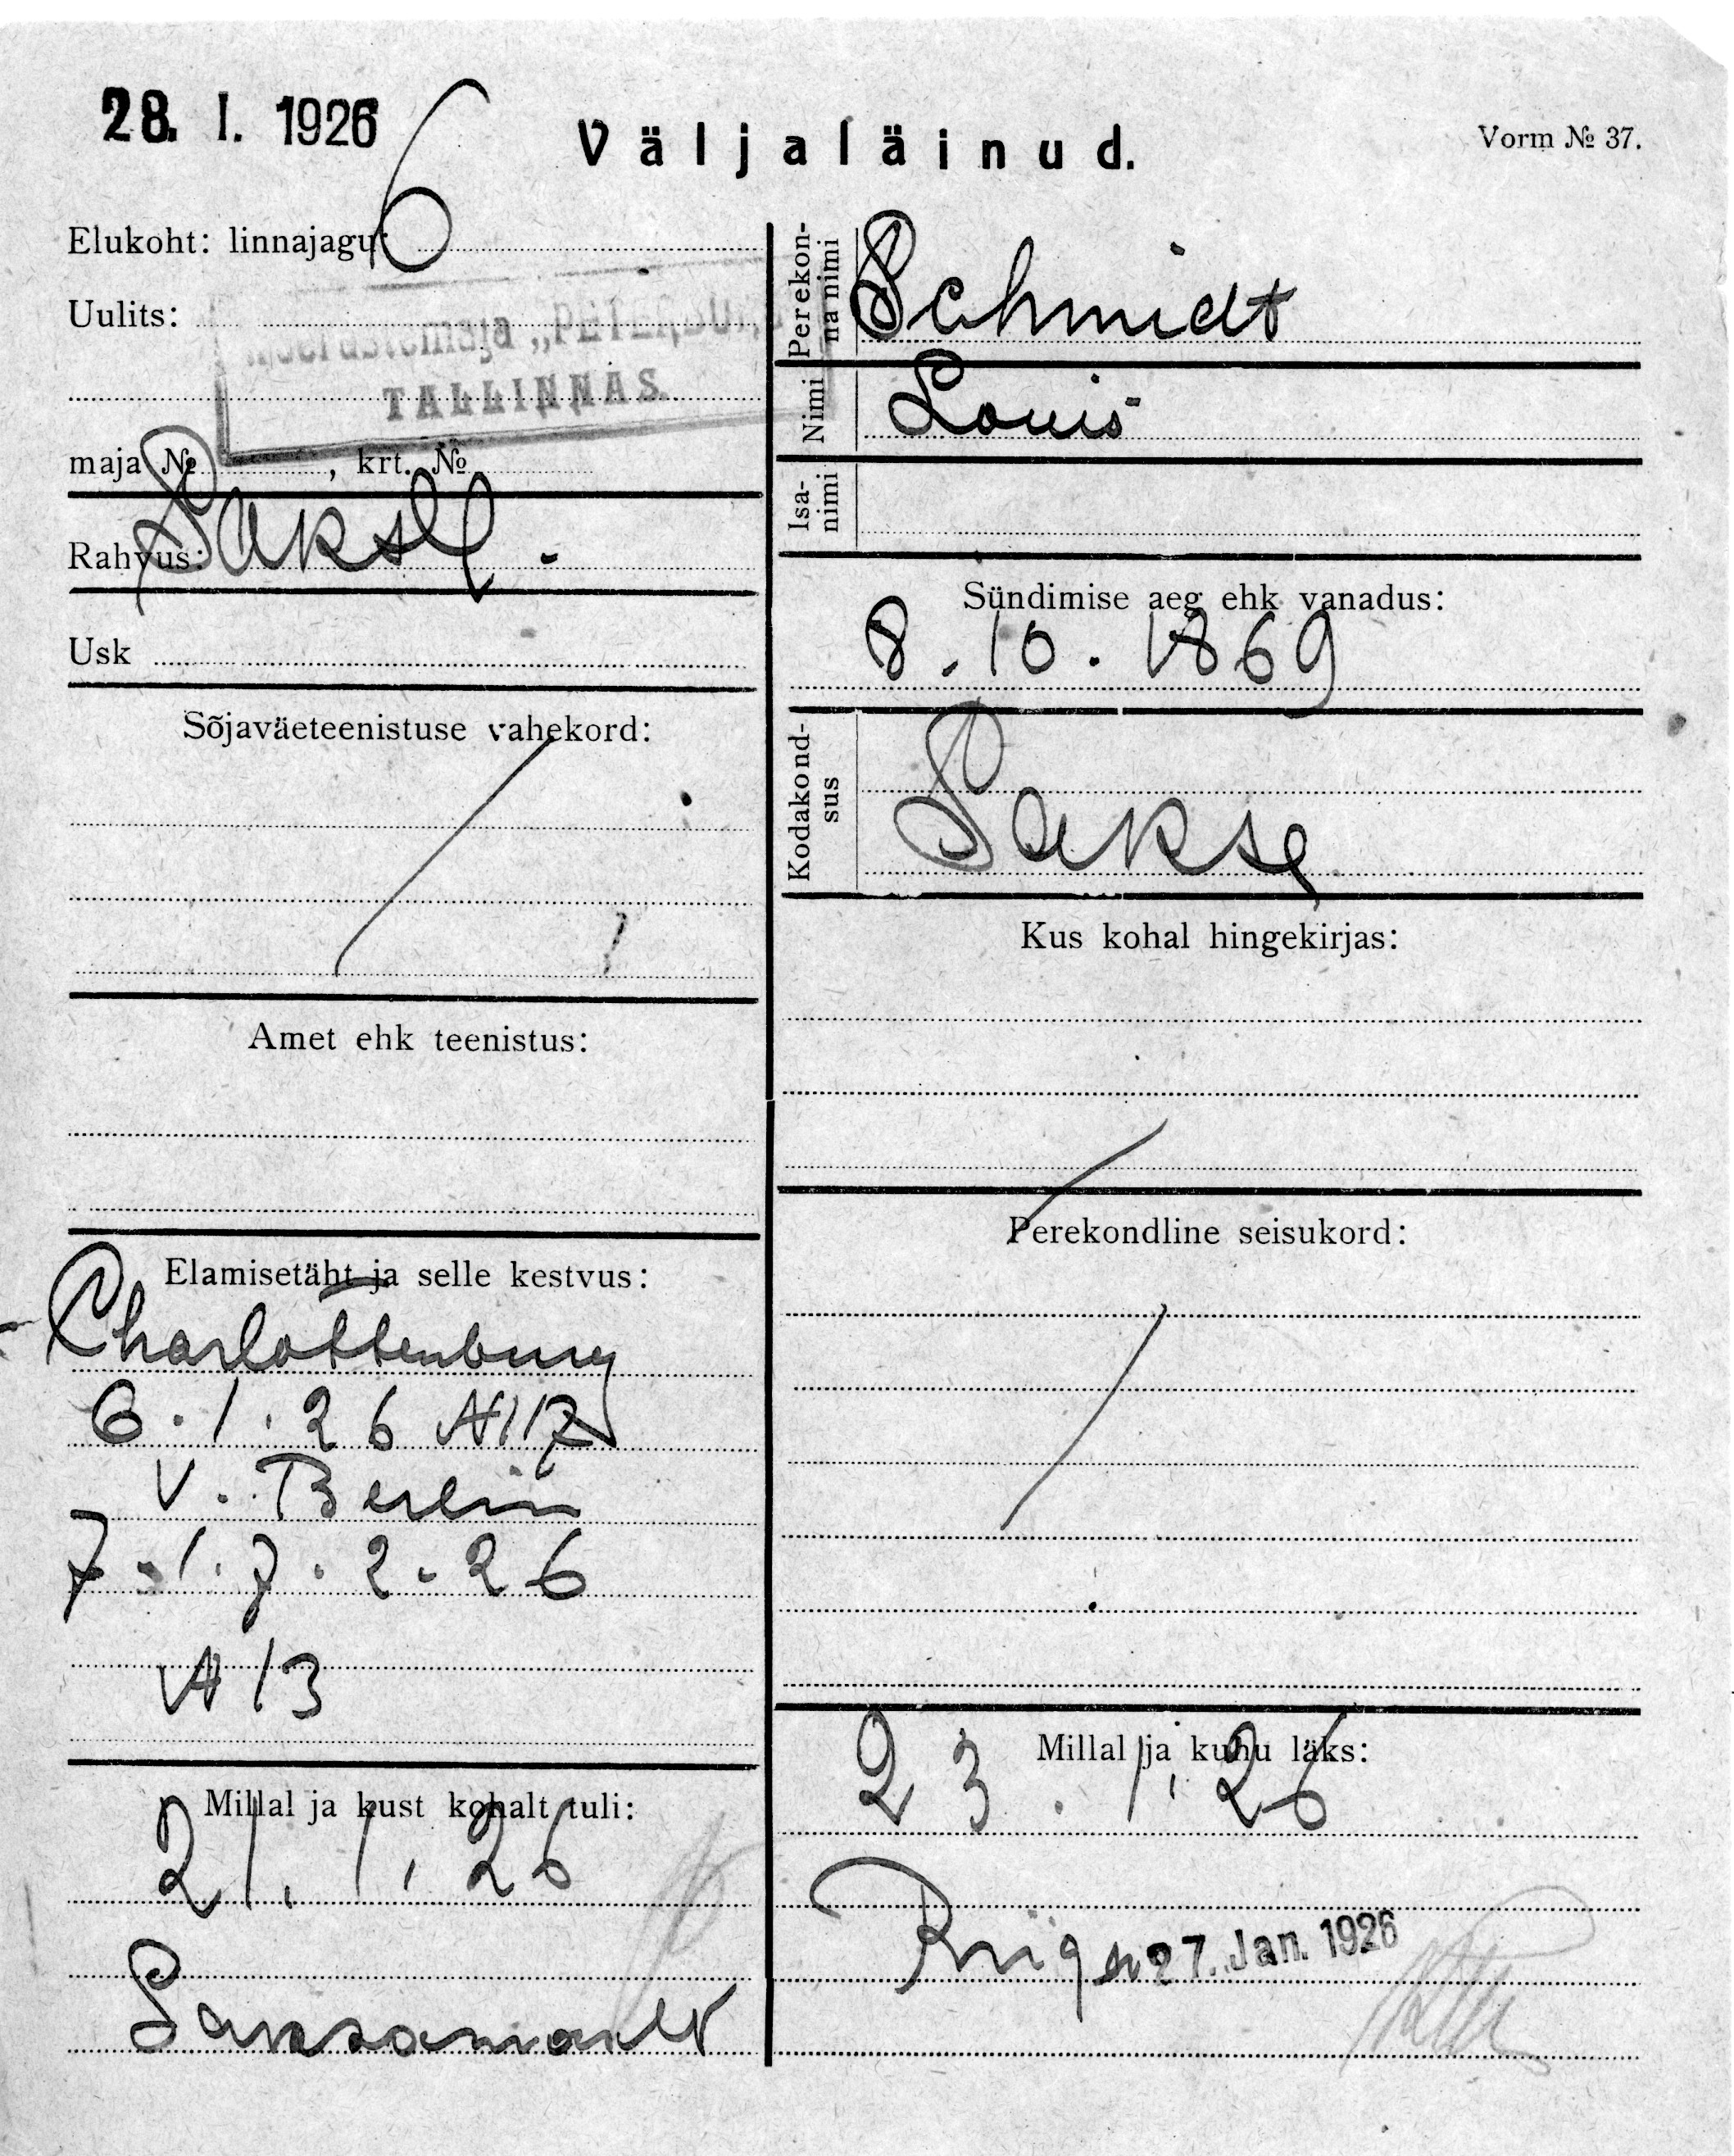 28. I. 1926
Väljaläinud.
Vorm № 37.
Elukoht: linnajagu: 6
Uulits:
„PETERBU
TALLINNAS.
maja № , krt. №
Rahvus: Sakse.
Usk
Sõjaväeteenistuse vahekord:
Amet ehk teenistus:
Elamisetäht ja selle kestvus:
Charlottenburg
6.1.26 № 17
V. Berlin
7.1.7.2.26
№ 13
Millal ja kust kohalt tuli:
21.1.26
Saksamaalt
Perekon-
na nimi
Schmidt
Nimi
Louis
Isa-
nimi
Sündimise aeg ehk vanadus:
8.10.1869
Kodakond-
sus
Sakse
Kus kohal hingekirjas:
Perekondline seisukord:
Millal ja kuhu läks:
23.1.26
27. Jan. 1926